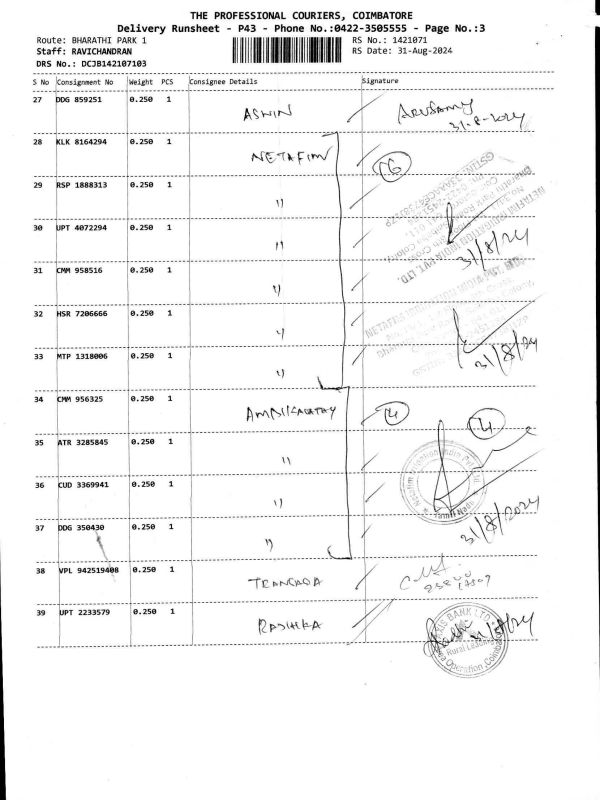 THE PROFESSIONAL COURIERS, COIMBATORE
Delivery Runsheet - P43 - Phone No.:0422-3505555 - Page No.:3
Route: BHARATHI PARK 1 RS No.: 1421071
Staff: RAVICHANDRAN RS Date: 31-Aug-2024
DRS No.: DCJB142107103
S No Consignment No Weight PCS Consignee Details Signature
27 DDG 859251 0.250 1 ASWIN ARUSAMY
31-8-2024
28 KLK 8164294 0.250 1 NETAFIM 6
29 RSP 1888313 0.250 1 〃
30 UPT 4072294 0.250 1 〃 31/8/24
31 CMM 958516 0.250 1 〃
32 HSR 7206666 0.250 1 〃
33 MTP 1318006 0.250 1 〃 31/8/24
34 CMM 956325 0.250 1 4 4
35 ATR 3285845 0.250 1 〃
36 CUD 3369941 0.250 1 〃
37 DDG 350430 0.250 1 〃 31/8/2024
38 VPL 942519408 0.250 1
39 UPT 2233579 0.250 1 RADHIKA
AXIS BANK LTD